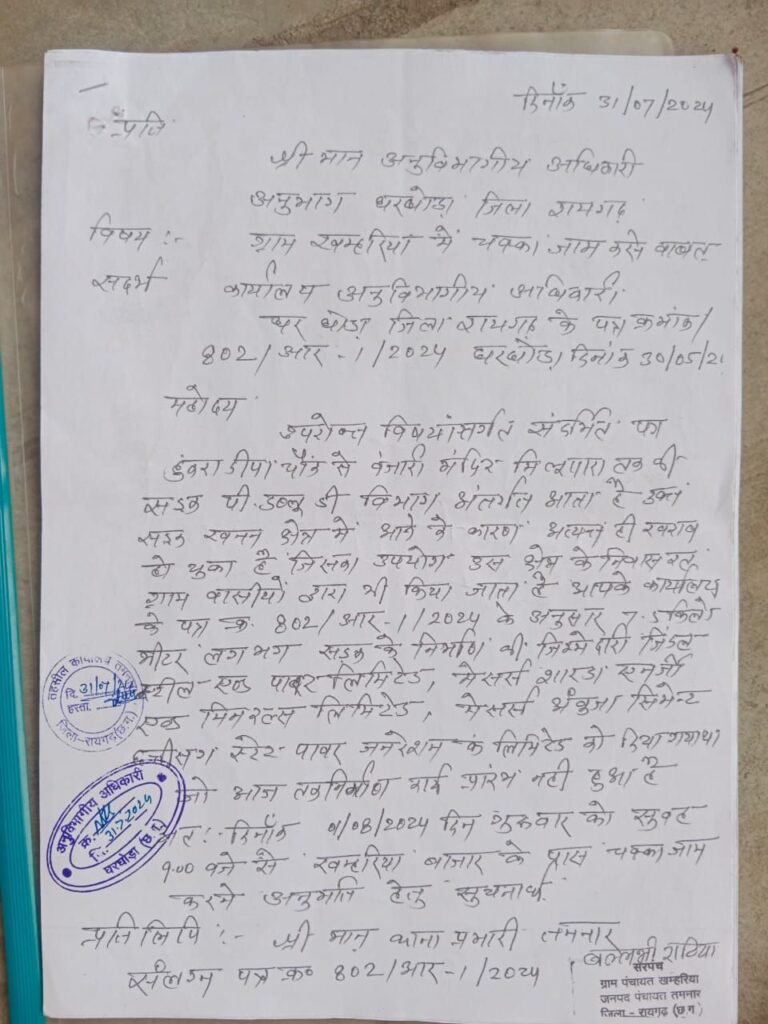 दिनाँक 31/07/2024
प्रति
श्री मान अनुविभागीय अधिकारी
अनुभाग घरघोड़ा जिला रायगढ़
विषय :- ग्राम खम्हरिया में चक्का जाम करने बाबत्
संदर्भ कार्यालय अनुविभागीय अधिकारी
घर घोड़ा जिला रायगढ़ के पत्र क्रमांक/
802/आर-1/2024 घरघोड़ा दिनांक 30/05/2
महोदय
उपरोक्त विषयांतर्गत संदर्भित
हुंकराडीपा चौंक से बंजारी मंदिर मिलूपारा तक की
सड़क पी.डब्लू डी विभाग अंतर्गत आता है उक्त
सड़क खनन क्षेत्र में आने के कारण अत्यन्त ही खराब
हो चुका है जिसका उपयोग उस क्षेत्र के
ग्राम वासीयों द्वारा भी किया जाता है आपके कार्यालय
के पत्र क्र. 802/आर-1/2024 के अनुसार 7.5 किलो
मीटर लगभग सड़क के निर्माण की जिम्मेदारी जिंदल
स्टील एण्ड पावर लिमिटेड, मेसर्स शारडा एनर्जी
एण्ड मिनरल्स लिमिटेड, मेसर्स अंबुजा सिमेन्ट
स्टेट पावर जनरेशन कं लिमिटेड को दिया गया था
जो आज तक निर्माण कार्य प्रारंभ नही हुआ है
अतः दिनाँक 01/08/2024 दिन गुरुवार को सुबह
9.00 बजे से खम्हरिया बाजार के पास चक्काजाम
करने अनुमति हेतु सुचनार्थ
प्रतिलिपि :- श्री मान थाना प्रभारी तमनार
संलग्न पत्र क्र० 802/आर-1/2024
राठिया
सरपंच
ग्राम पंचायत खम्हरिया
जनपद पंचायत तमनार
जिला - रायगढ़ (छ.ग.)
तहसील कार्यालय तमनार
दि. 31/7/24
हस्ता.
जिला-रायगढ़ (छ.ग.)
अनुविभागीय अधिकारी
क्र.
31.7.2024
घरघोड़ा (छ.ग.)